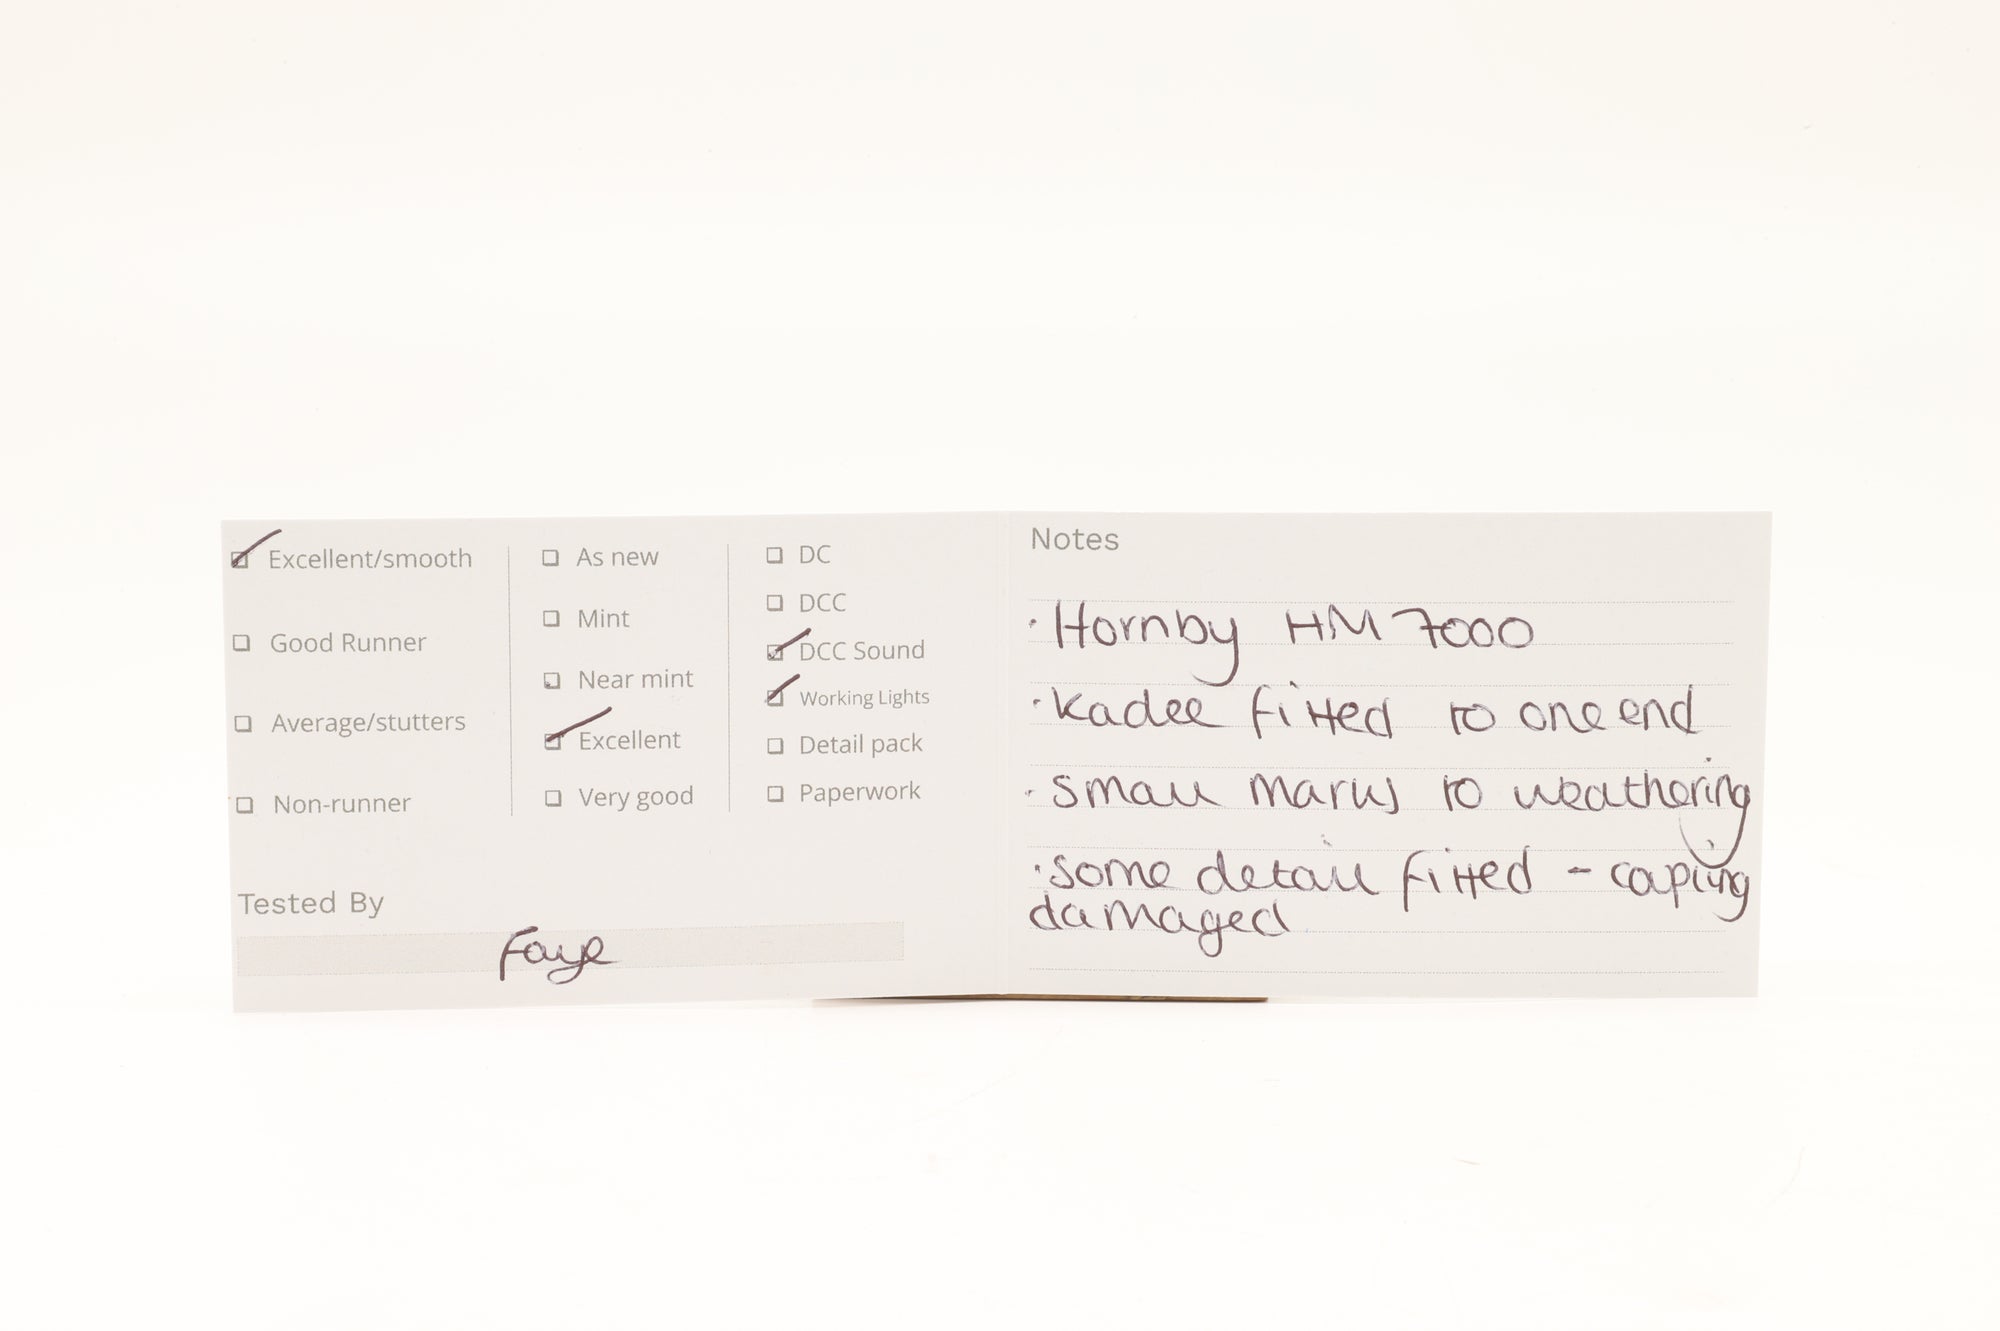 Excellent/smooth
Good Runner
Average/stutters
Non-runner
As new
Mint
Near mint
Excellent
Very good
DC
DCC
DCC Sound
Working Lights
Detail pack
Paperwork
Tested By
Faye
Notes
· Hornby HM7000
· Kadee fitted to one end
· Small marks to weathering
· Some detail fitted - copling
damaged